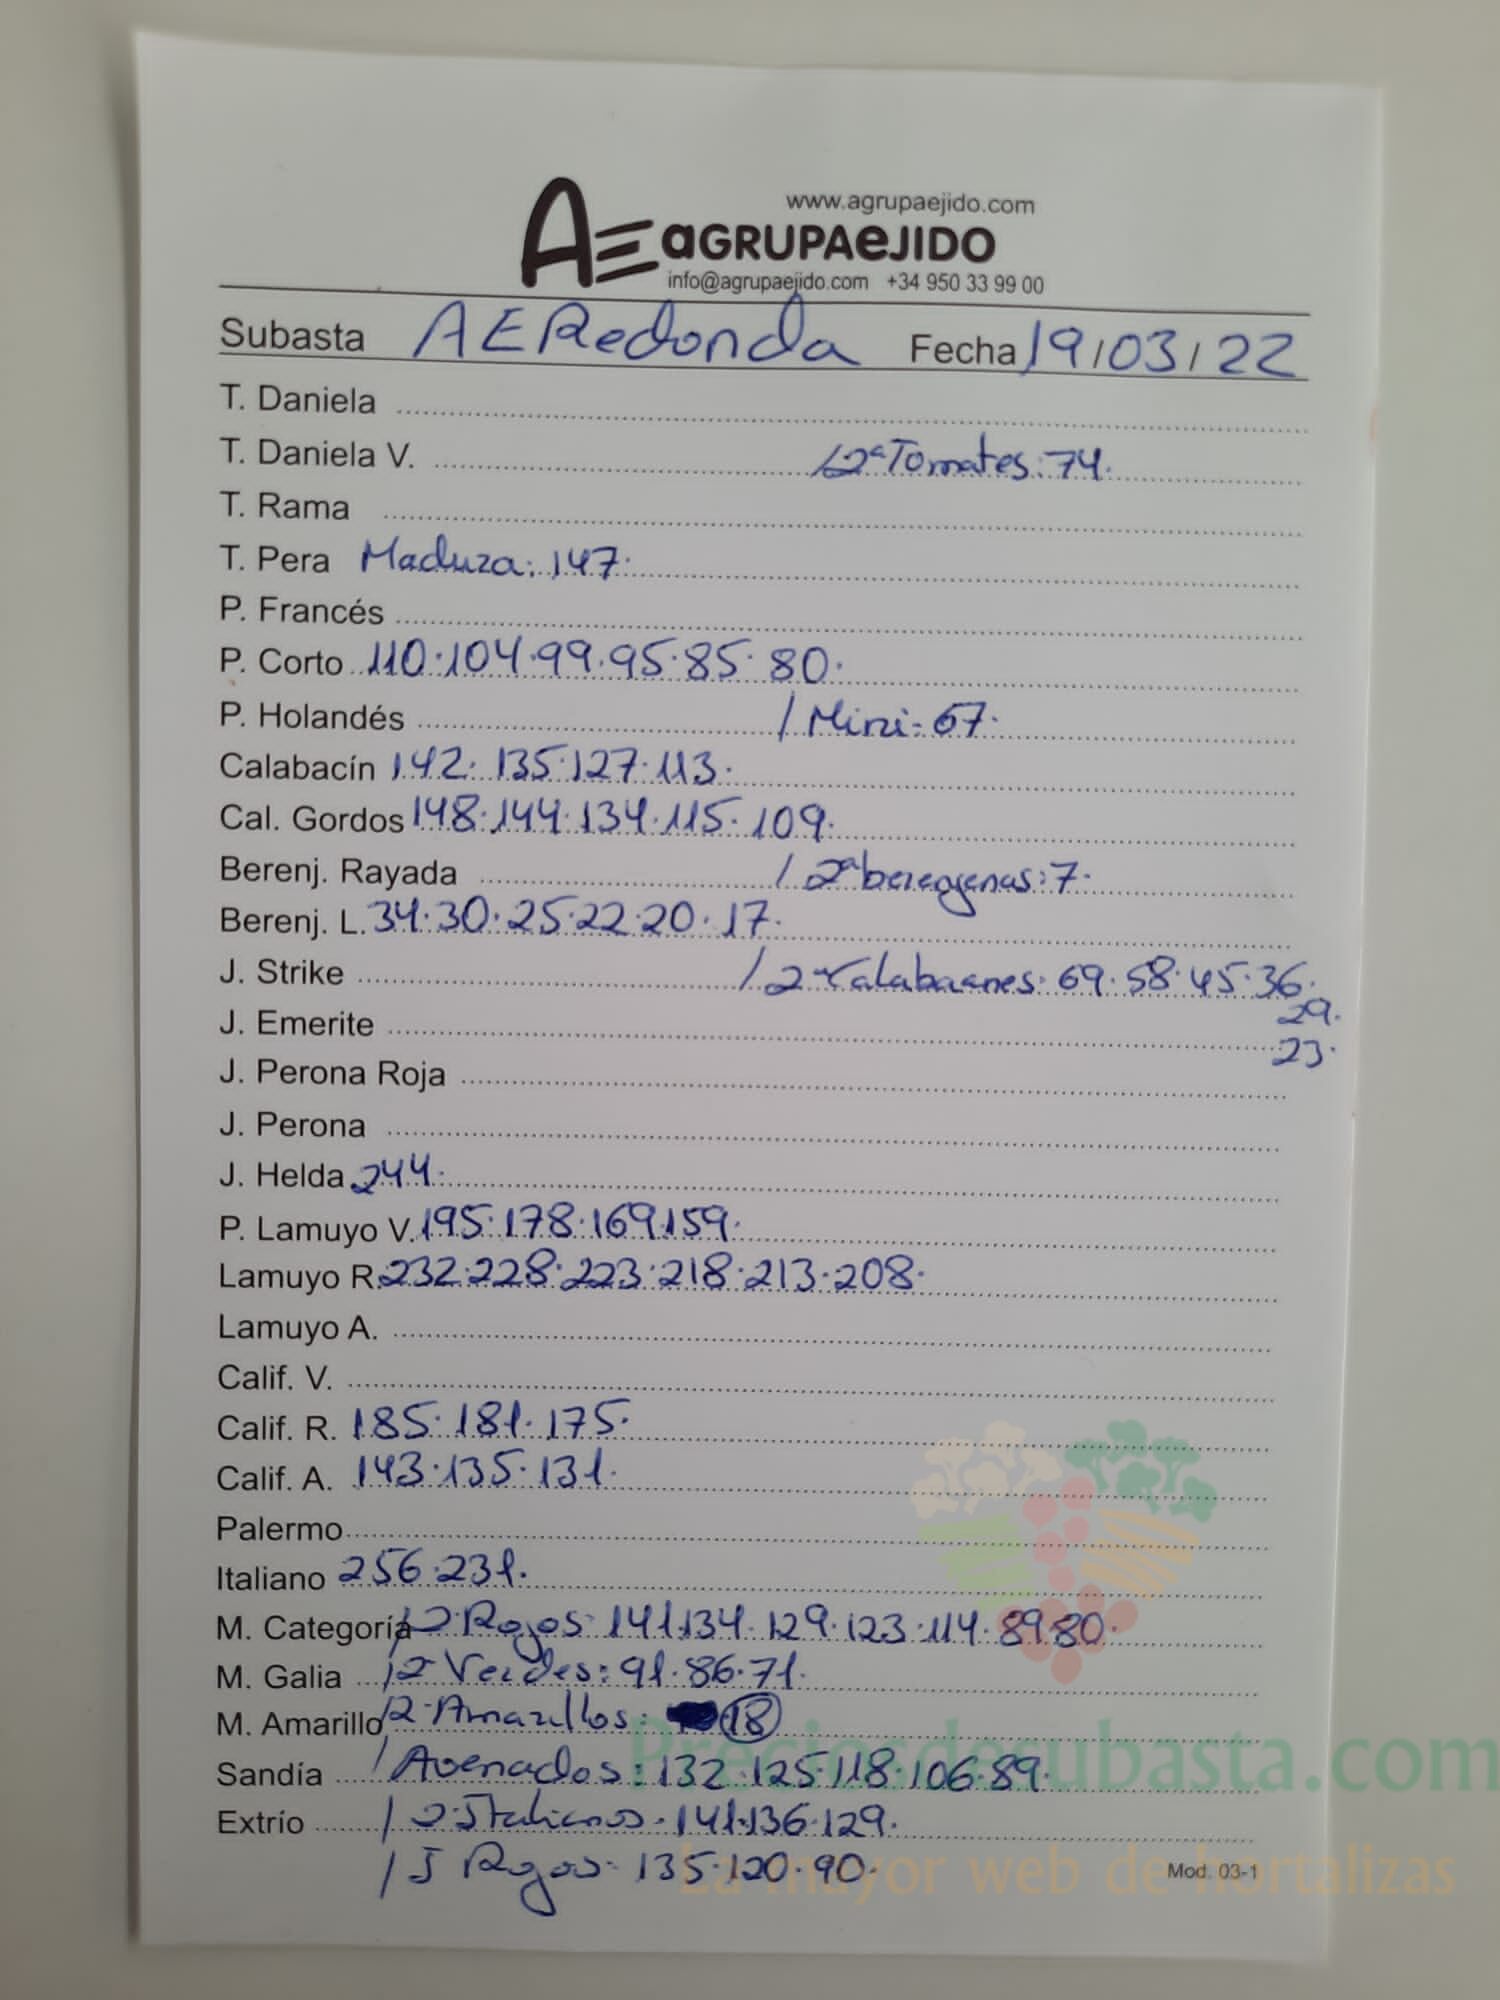 www.agrupaejido.com
AE aGRUPAeJIDO
info@agrupaejido.com +34 950 33 99 00
Subasta AERedonda Fecha 19/03/22
T. Daniela
T. Daniela V. /2ª Tomates: 74.
T. Rama
T. Pera Madura: 147.
P. Francés
P. Corto 110.104.99.95.85.80.
P. Holandés / Mini: 67.
Calabacín 142.135.127.113.
Cal. Gordos 148.144.134.115.109.
Berenj. Rayada / 2ª berenjenas: 7.
Berenj. L. 34.30.25.22.20.17.
J. Strike / 2ª Calabacines: 69.58.45.36.
29.
J. Emerite
23.
J. Perona Roja
J. Perona
J. Helda 244.
P. Lamuyo V. 195.178.169.159.
Lamuyo R. 232.228.223.218.213.208.
Lamuyo A.
Calif. V.
Calif. R. 185.181.175.
Calif. A. 143.135.131.
Palermo
Italiano 256.231.
M. Categoría /2. Rojos: 141.134.129.123.114.89.80.
M. Galia /2 Verdes: 91.86.71.
M. Amarillo /2. Amarillos: 18
Sandía / Asenados: 132.125.118.106.89.
Preciosdesubasta.com
Extrío / 2. Italianos. 141.136.129.
/ I Rojos: 135.120.90.
La mayor web de hortalizas
Mod. 03-1